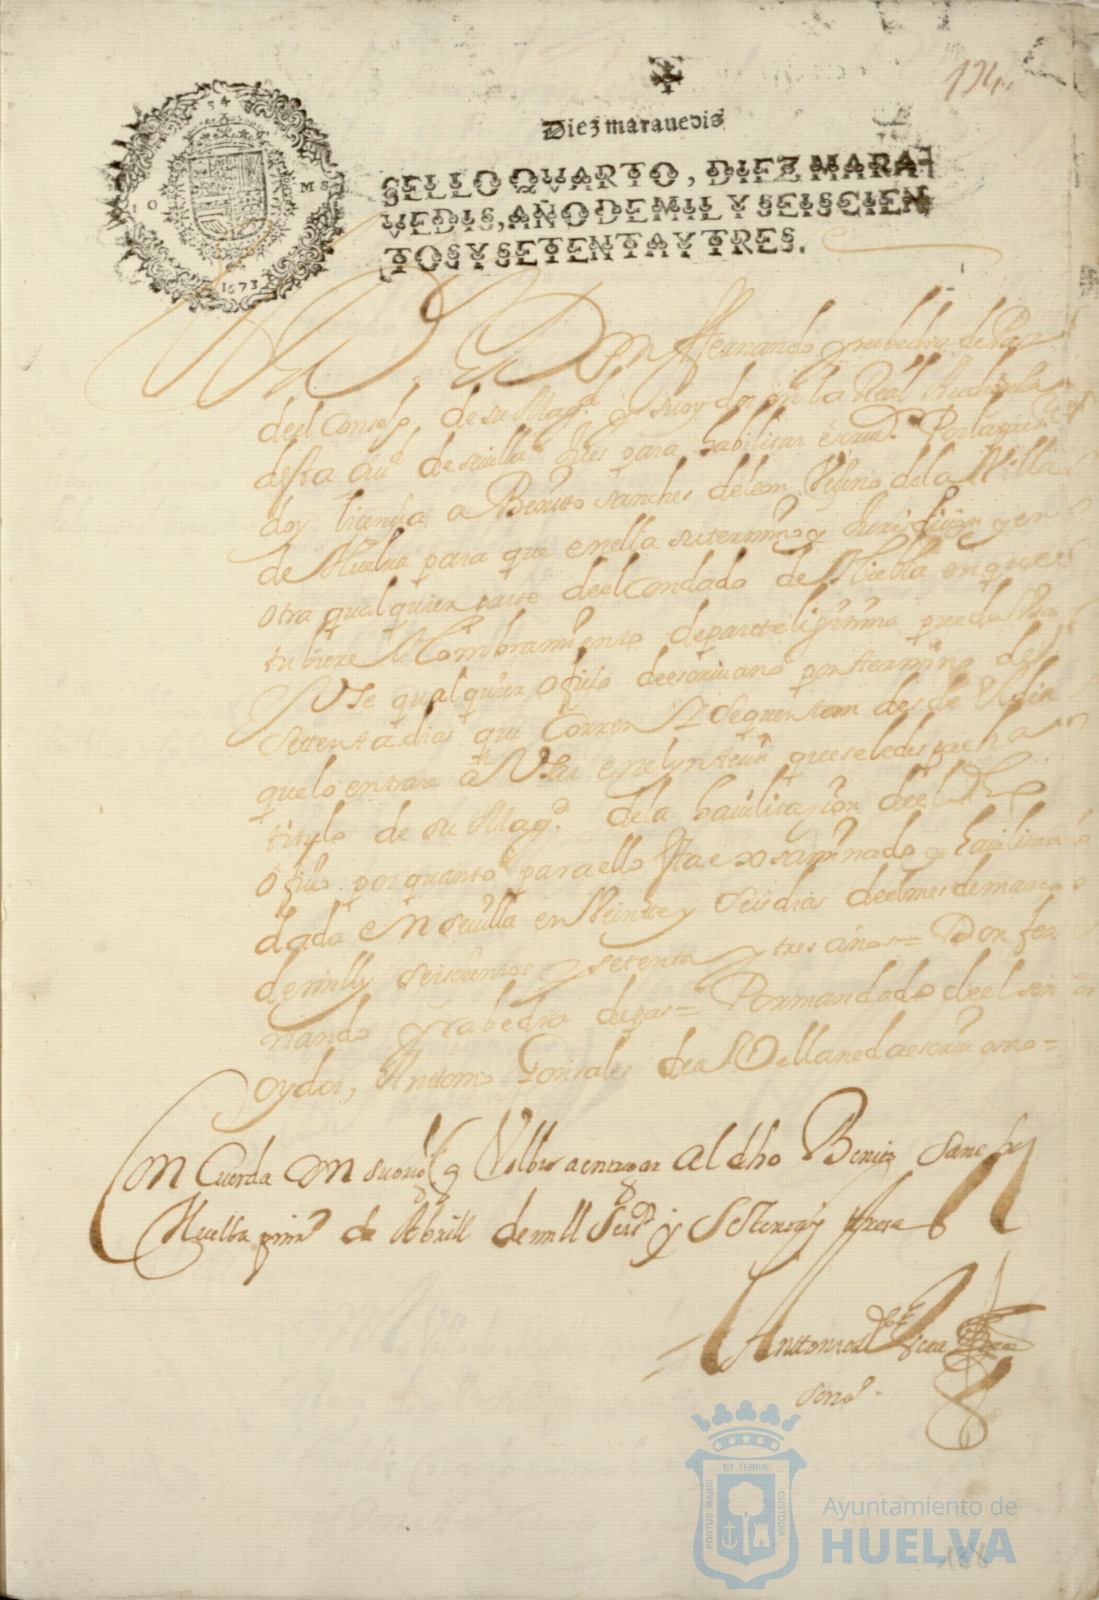 124
Diez maravedis
SELLO QVARTO, DIEZ MARA-
VEDIS, AÑO DE MIL Y SEISCIEN
TOS Y SETENTA Y TRES.
54
10 MS
1673
Don Fernando yrabedra de Paz
deel Consejo de su Magd. y su oydor en la Real Audiencia
desta ciud de sevilla Jues para habilitar escriu.s Por la press.te
doy licencia a Benito sanches de leon Vesino de la Villa
de Huelua para que en ella su termino y Jurisdizion y en
otra qualquier parte deel Condado de Niebla en que
tubiere Nombramiento de parte lijitima pueda
Vse qualquier ofisio de escriuano por termino de
settenta dias que Corren desde el dia
que lo entrare a Vsar en el ynterin que se le despacha
titulo de su Magd. de la hauilitazion deel dho
ofisio por quanto para ello esta exsaminado y hauilitado
dada en Seuilla en Veinte y Seis dias deel mes de março
de mill y seiscientos y setenta y tres años = Don fer
nando yrabedra de pas = Por mandado deel señor
oydor, Antonio Gonsales de Auellaneda escriuano =
Con Cuerda Con su orixl q Volbi a entregar al dho Benito Sanches
Huelba prim.o de Abrill de mill Seisos y Setenta y tres a
Antonio de
ET TERRÆ
PORTUS MARIS
CUSTODIA
Ayuntamiento de
HUELVA